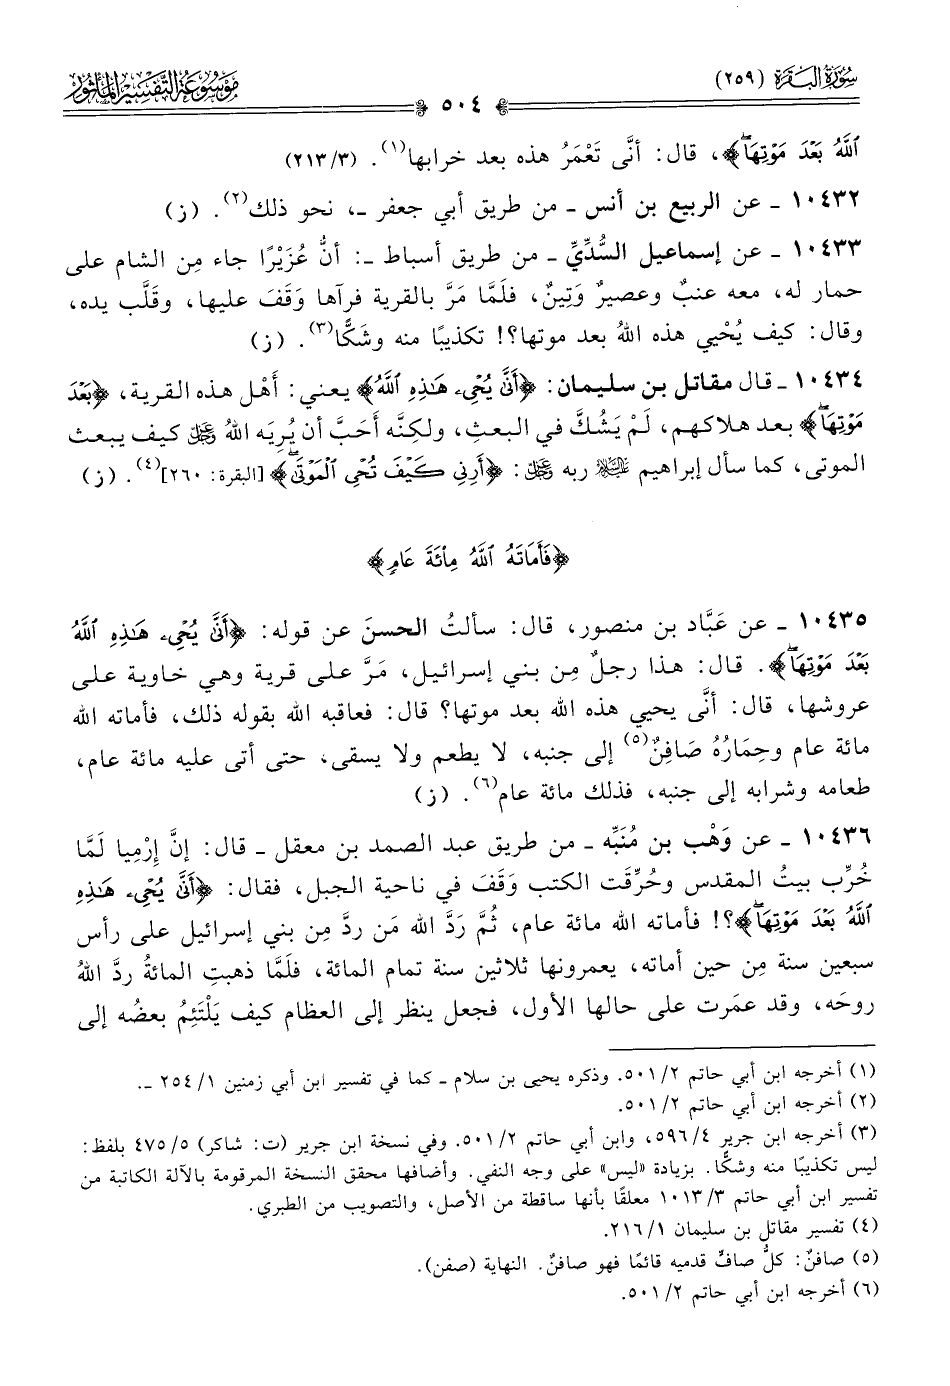 سُورَةُ البَقَرَةِ (٢٥٩)
٥٠٤
مَوْسُوعَة التَّفْسِيْر المَأْثُور
ٱللَّهُ بَعْدَ مَوْتِهَاۖ﴾، قال: أنَّى تَعْمَرُ هذه بعد خرابها(١). (٢١٣/٣)
١٠٤٣٢ ـ عن الربيع بن أنس ـ من طريق أبي جعفر ـ، نحو ذلك(٢). (ز)
١٠٤٣٣ ـ عن إسماعيل السُّدِّيِّ ـ من طريق أسباط ـ: أنَّ عُزَيْرًا جاء مِن الشام على
حمار له، معه عنبٌ وعصيرٌ وَتِينٌ، فلَمَّا مَرَّ بالقرية فرآها وَقَفَ عليها، وقَلَّب يده،
وقال: كيف يُحْيي هذه اللهُ بعد موتها؟! تكذيبًا منه وشَكًّا(٣). (ز)
١٠٤٣٤ ـ قال مقاتل بن سليمان: ﴿أَنَّىٰ يُحْيِۦ هَٰذِهِ ٱللَّهُ﴾ يعني: أَهْل هذه القرية، ﴿بَعْدَ
مَوْتِهَاۖ﴾ بعد هلاكهم، لَمْ يَشُكَّ في البعث، ولكِنَّه أَحَبَّ أن يُرِيَه اللهُ ﷿ كيف يبعث
الموتى، كما سأل إبراهيم ﵇ ربه ﷿: ﴿أَرِنِي كَيْفَ تُحْيِ ٱلْمَوْتَىٰۖ﴾ [البقرة: ٢٦٠](٤). (ز)
﴿فَأَمَاتَهُ ٱللَّهُ مِا۟ئَةَ عَامٍ﴾
١٠٤٣٥ ـ عن عَبَّاد بن منصور، قال: سألتُ الحسنَ عن قوله: ﴿أَنَّىٰ يُحْيِۦ هَٰذِهِ ٱللَّهُ
بَعْدَ مَوْتِهَاۖ﴾. قال: هذا رجلٌ مِن بني إسرائيل، مَرَّ على قرية وهي خاوية على
عروشها، قال: أنَّى يحيي هذه الله بعد موتها؟ قال: فعاقبه الله بقوله ذلك، فأماته الله
مائة عام وحِمَارُهُ صَافِنٌ(٥) إلى جنبه، لا يطعم ولا يسقى، حتى أتى عليه مائة عام،
طعامه وشرابه إلى جنبه، فذلك مائة عام(٦). (ز)
١٠٤٣٦ ـ عن وَهْب بن مُنَبِّه ـ من طريق عبد الصمد بن معقل ـ قال: إنَّ إرْمِيا لَمَّا
خُرِّب بيتُ المقدس وحُرِّقَت الكتب وَقَفَ في ناحية الجبل، فقال: ﴿أَنَّىٰ يُحْيِۦ هَٰذِهِ
ٱللَّهُ بَعْدَ مَوْتِهَاۖ﴾؟! فأماته الله مائة عام، ثُمَّ رَدَّ الله مَن ردَّ مِن بني إسرائيل على رأس
سبعين سنة مِن حين أماته، يعمرونها ثلاثين سنة تمام المائة، فلَمَّا ذهبتِ المائةُ ردَّ اللهُ
روحَه، وقد عمَرت على حالها الأول، فجعل ينظر إلى العظام كيف يَلْتَئِمُ بعضُه إلى
(١) أخرجه ابن أبي حاتم ٥٠١/٢. وذكره يحيى بن سلام ـ كما في تفسير ابن أبي زمنين ٢٥٤/١ ـ.
(٢) أخرجه ابن أبي حاتم ٥٠١/٢.
(٣) أخرجه ابن جرير ٥٩٦/٤، وابن أبي حاتم ٥٠١/٢. وفي نسخة ابن جرير (ت: شاكر) ٤٧٥/٥ بلفظ:
ليس تكذيبًا منه وشكًّا. بزيادة «ليس» على وجه النفي. وأضافها محقق النسخة المرقومة بالآلة الكاتبة من
تفسير ابن أبي حاتم ١٠١٣/٣ معلقًا بأنها ساقطة من الأصل، والتصويب من الطبري.
(٤) تفسير مقاتل بن سليمان ٢١٦/١.
(٥) صافنٌ: كلُّ صافٍّ قدميه قائمًا فهو صافنٌ. النهاية (صفن).
(٦) أخرجه ابن أبي حاتم ٥٠١/٢.